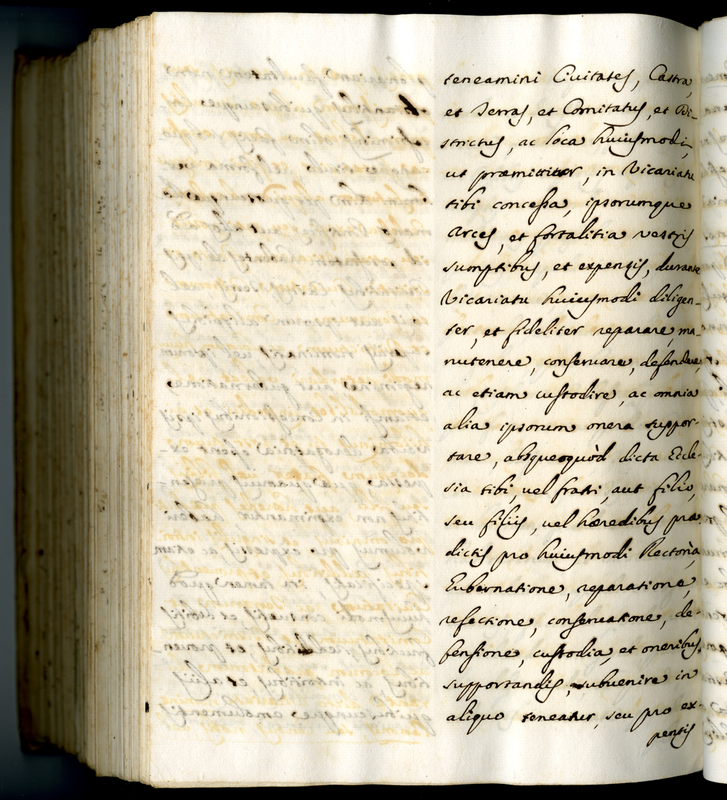 teneamini Civitates, Castra,
et Terras, et Comitatus, et Di-
strictus, ac loca huiusmodi,
ut præmittitur, in Vicariatu
tibi concessa, ipsorumque
Arces, et fortalitia vestris
sumptibus, et expensis, durante
Vicariatu huiusmodi diligen-
ter, et fideliter reparare, ma-
nutenere, conservare, defendere,
ac etiam custodire, ac omnia
alia ipsorum onera suppor-
tare, absque quòd dicta Eccle-
sia tibi, vel fratri, aut filio,
seu filijs, vel hæredibus præ
dictis pro huiusmodi Rectoria,
Gubernatione, reparatione,
refectione, conservatione, de-
fensione, custodia, et oneribus
supportandis, subvenire in
aliquo teneatur, seu pro ex-
pensis